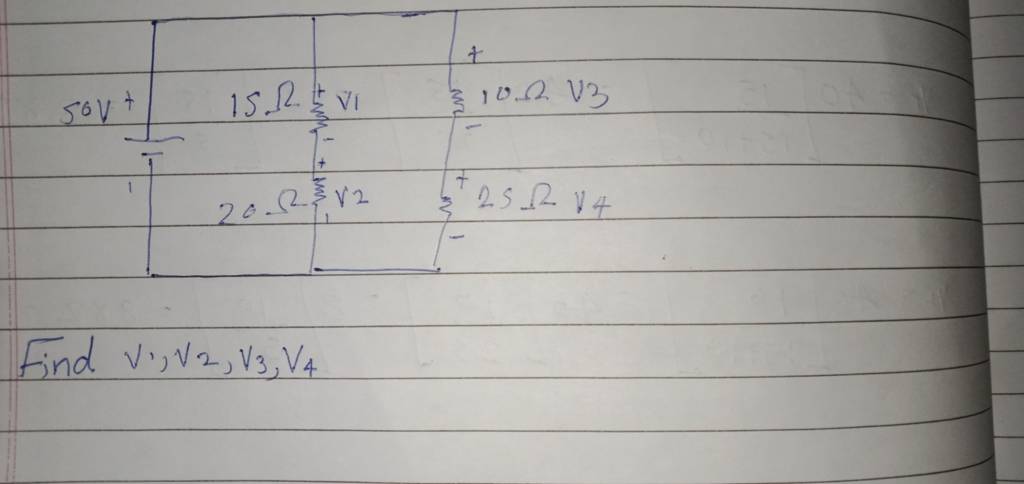 +
50V + 15Ω + V1 10Ω V3
- -
+ +
20Ω V2 25Ω V4
-
Find V1, V2, V3, V4